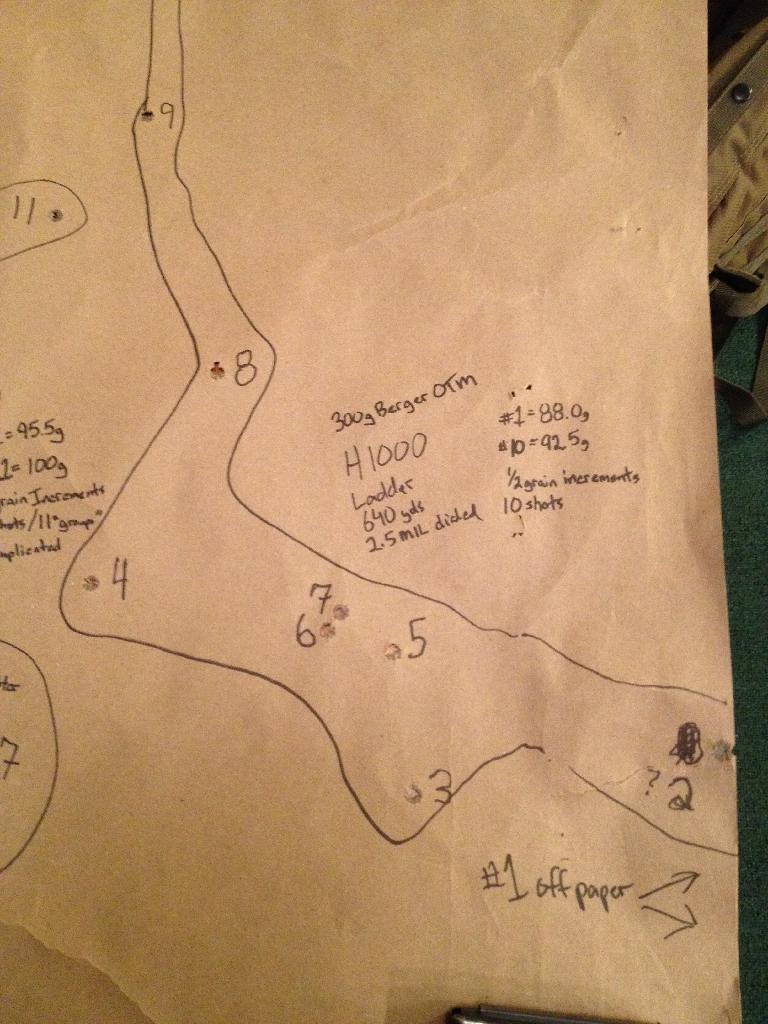 9
11
8
300g Berger OTM
H1000
Ladder
640 yds
2.5 MIL dialed
#1=88.0g
#10=92.5g
1/2 grain increments
10 shots
=95.5g
1=100g
rain Increments
hots/11"group"
mplicated
4
7
6
5
3
? 2
7
#1 off paper